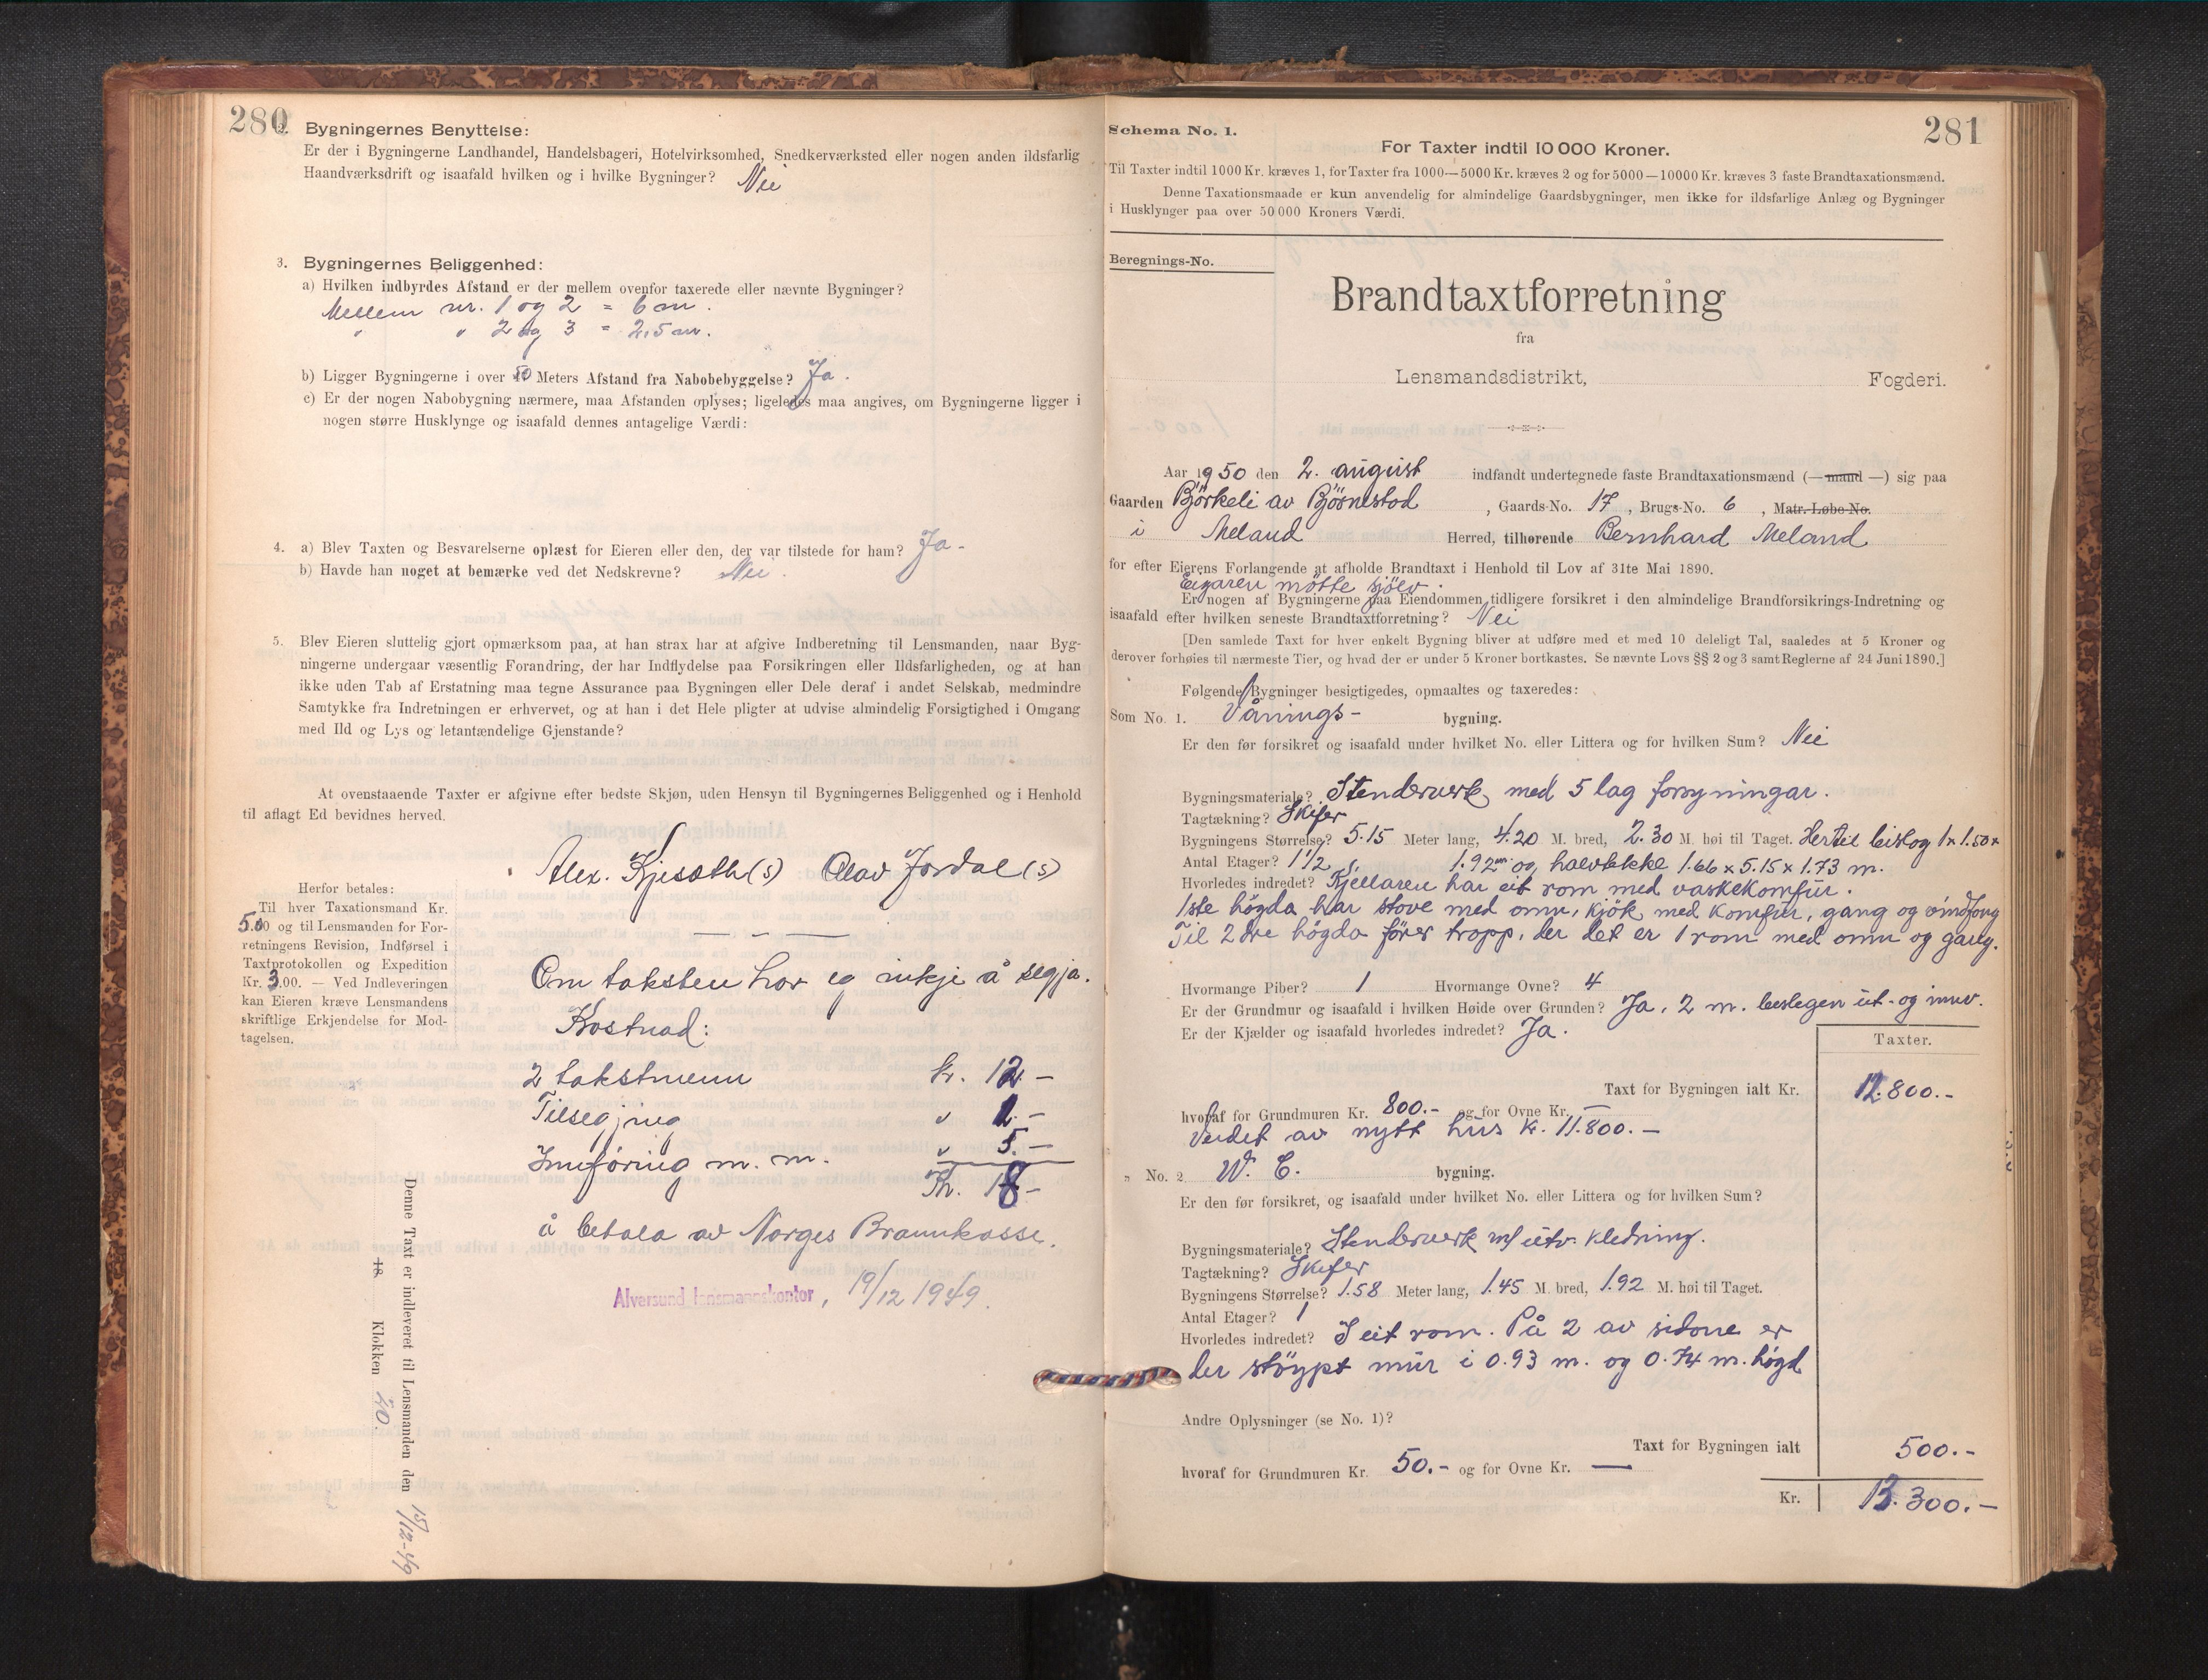 280
2. Bygningernes Benyttelse:
Er der i Bygningerne Landhandel, Handelsbageri, Hotelvirksomhed, Snedkerværksted eller nogen anden ildsfarlig
Haandværksdrift og isaafald hvilken og i hvilke Bygninger? Nei
3. Bygningernes Beliggenhed:
a) Hvilken indbyrdes Afstand er der mellem ovenfor taxerede eller nævnte Bygninger?
Mellem nr. 1 og 2 = 6 m.
" " 2 og 3 = 2,5 m.
b) Ligger Bygningerne i over 50 Meters Afstand fra Nabobebyggelse? Ja.
c) Er der nogen Nabobygning nærmere, maa Afstanden oplyses; ligeledes maa angives, om Bygningerne ligger i
nogen større Husklynge og isaafald dennes antagelige Værdi:
4. a) Blev Taxten og Besvarelserne oplæst for Eieren eller den, der var tilstede for ham? Ja -
b) Havde han noget at bemærke ved det Nedskrevne? Nei.
5. Blev Eieren sluttelig gjort opmærksom paa, at han strax har at afgive Indberetning til Lensmanden, naar Byg-
ningerne undergaar væsentlig Forandring, der har Indflydelse paa Forsikringen eller Ildsfarligheden, og at han
ikke uden Tab af Erstatning maa tegne Assurance paa Bygningen eller Dele deraf i andet Selskab, medmindre
Samtykke fra Indretningen er erhvervet, og at han i det Hele pligter at udvise almindelig Forsigtighed i Omgang
med Ild og Lys og letantændelige Gjenstande?
At ovenstaaende Taxter er afgivne efter bedste Skjøn, uden Hensyn til Bygningernes Beliggenhed og i Henhold
til aflagt Ed bevidnes herved.
Alex. Kjesæth (s) Olav Jordal (s)
Herfor betales:
Til hver Taxationsmand Kr.
5.00 og til Lensmanden for For-
retningens Revision, Indførsel i
Taxtprotokollen og Expedition
Kr. 3.00. — Ved Indleveringen
kan Eieren kræve Lensmandens
skriftlige Erkjendelse for Mod-
tagelsen.
Om taksten har eg inkje å segja.
Kostnad:
2 takstmenn kr. 12.—
Tilsegjing " 1.—
Innføring m. m. " 5.—
Kr. 18.—
å betala av Norges Brannkasse.
Alversund lensmannskontor, 19/12 1949.
Denne Taxt er indleveret til Lensmanden den 15/12-49
18 Klokken 20.
Schema No. 1.
281
For Taxter indtil 10 000 Kroner.
Til Taxter indtil 1000 Kr. kræves 1, for Taxter fra 1000—5000 Kr. kræves 2 og for 5000—10000 Kr. kræves 3 faste Brandtaxationsmænd.
Denne Taxationsmaade er kun anvendelig for almindelige Gaardsbygninger, men ikke for ildsfarlige Anlæg og Bygninger
i Husklynger paa over 50 000 Kroners Værdi.
Beregnings-No.
Brandtaxtforretning
fra
Lensmandsdistrikt, Fogderi.
Aar 1950 den 2. august indfandt undertegnede faste Brandtaxationsmænd (—mand—) sig paa
Gaarden Björkeli av Björnestad, Gaards-No. 17, Brugs-No. 6, Matr. Løbe No.
i Meland Herred, tilhørende Bernhard Meland
for efter Eierens Forlangende at afholde Brandtaxt i Henhold til Lov af 31te Mai 1890.
Eigaren møtte sjölv.
Er nogen af Bygningerne paa Eiendommen tidligere forsikret i den almindelige Brandforsikrings-Indretning og
isaafald efter hvilken seneste Brandtaxtforretning? Nei
[Den samlede Taxt for hver enkelt Bygning bliver at udføre med et med 10 deleligt Tal, saaledes at 5 Kroner og
derover forhøies til nærmeste Tier, og hvad der er under 5 Kroner bortkastes. Se nævnte Lovs §§ 2 og 3 samt Reglerne af 24 Juni 1890.]
Følgende Bygninger besigtigedes, opmaaltes og taxeredes:
Som No. 1. Vånings- bygning.
Er den før forsikret og isaafald under hvilket No. eller Littera og for hvilken Sum? Nei
Bygningsmateriale? Stenderverk med 5 lag forsyningar.
Tagtækning? Skifer
Bygningens Størrelse? 5.15 Meter lang, 4.20 M. bred, 2.30 M. høi til Taget. Hertil bislog 1 x 1.50 x
Antal Etager? 1 1/2 1.92 m og halvtekke 1.66 x 5.15 x 1.73 m.
Hvorledes indredet? Kjellaren har eit rom med vaskekomfür.
1ste högda har stove med omn, kjök med komfür, gang og vindfong
Til 2dre högda förer tropp, der det er 1 rom med omn og gang.
Hvormange Piber? 1 Hvormange Ovne? 4
Er der Grundmur og isaafald i hvilken Høide over Grunden? Ja, 2 m. beslegen út- og innv.
Er der Kjælder og isaafald hvorledes indredet? Ja.
Taxter.
Taxt for Bygningen ialt Kr. 12.800.-
hvoraf for Grundmuren Kr. 800.- og for Ovne Kr. —
Verdet av nytt hüs kr. 11.800.—
" No. 2 W. C. bygning.
Er den før forsikret, og isaafald under hvilket No. eller Littera og for hvilken Sum?
Bygningsmateriale? Stenderverk m/ útv. kledning.
Tagtækning? Skifer
Bygningens Størrelse? 1.58 Meter lang, 1.45 M. bred, 1.92 M. høi til Taget.
Antal Etager? 1
Hvorledes indredet? I eit rom. På 2 av sidone er
der stöypt mür i 0.93 m. og 0.74 m. högd
Andre Oplysninger (se No. 1)?
Taxt for Bygningen ialt 500.-
hvoraf for Grundmuren Kr. 50.- og for Ovne Kr. —
Kr. 13.300.—